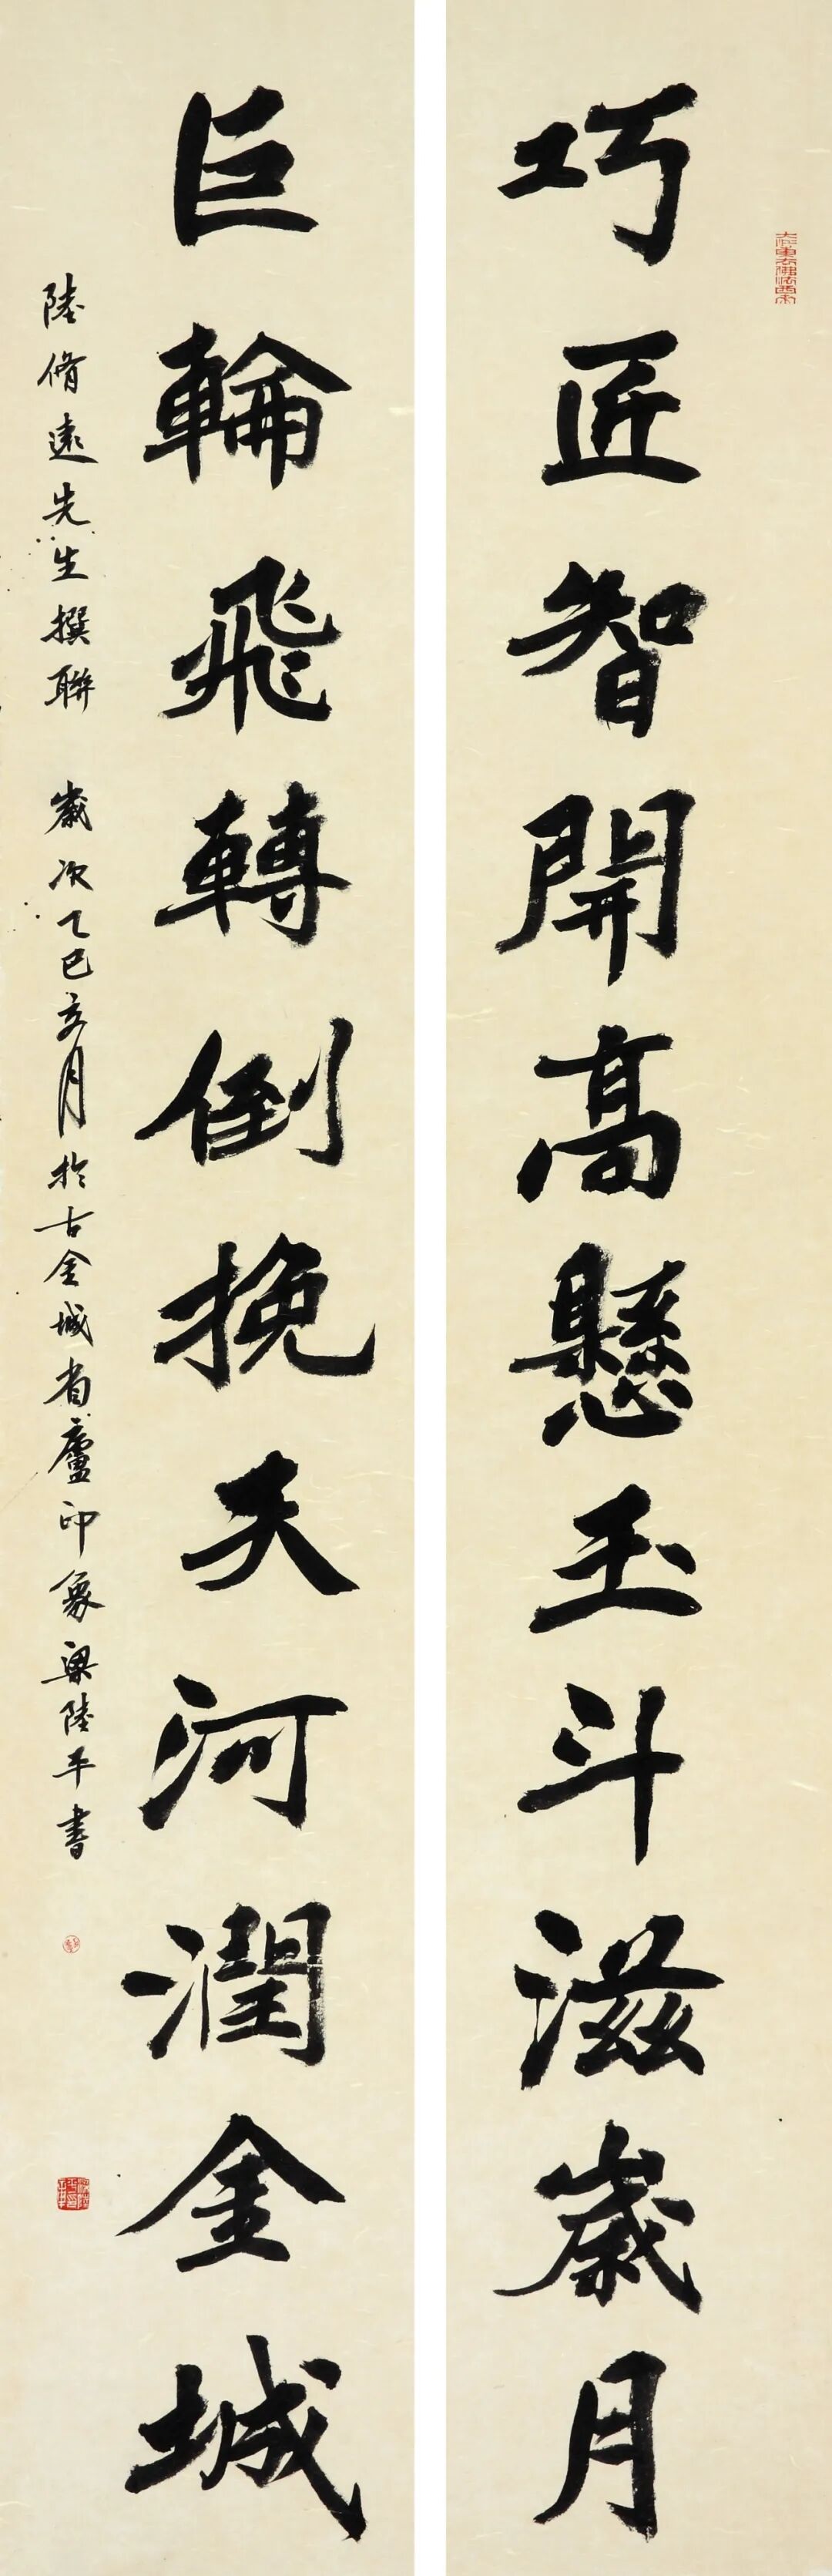 巧匠智開高懸玉斗滋歲月
巨輪飛轉倒挽天河潤金城
陸脩遠先生撰聯 歲次乙巳亥月於古金城省廬印象梁陸平書